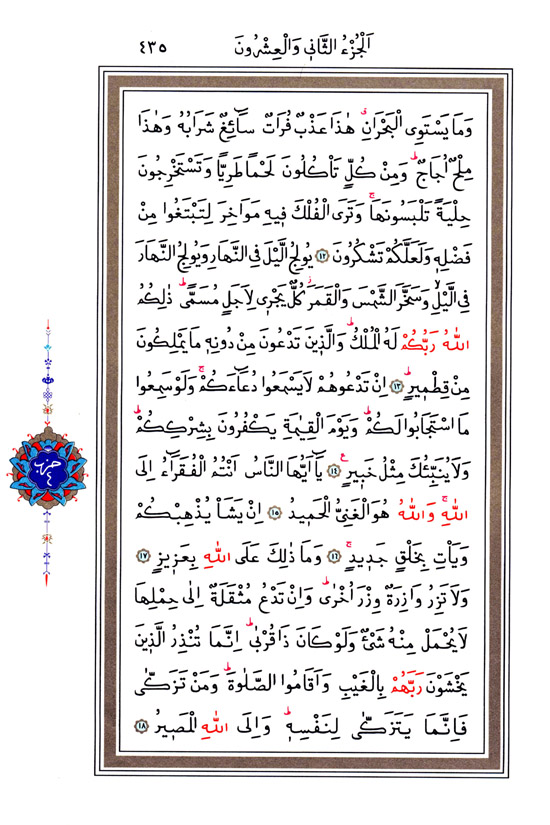 اَلْجُزْءُ الثَّانٖي وَالْعِشْرُونَ ٤٣٥
وَمَا يَسْتَوِي الْبَحْرَانِۗ هٰذَا عَذْبٌ فُرَاتٌ سَٓائِغٌ شَرَابُهُ وَهٰذَا
مِلْحٌ اُجَاجٌۜ وَمِنْ كُلٍّ تَأْكُلُونَ لَحْماً طَرِياًّ وَتَسْتَخْرِجُونَ
حِلْيَةً تَلْبَسُونَهَاۚ وَتَرَى الْفُلْكَ فٖيهِ مَوَاخِرَ لِتَبْتَغُوا مِنْ
فَضْلِهٖ وَلَعَلَّكُمْ تَشْكُرُونَ ﴿١٢﴾ يُولِجُ الَّيْلَ فِي النَّهَارِ وَيُولِجُ النَّهَارَ
فِي الَّيْلِۙ وَسَخَّرَ الشَّمْسَ وَالْقَمَرَؗ كُلٌّ يَجْرٖي لِاَجَلٍ مُسَمًّىۜ ذٰلِكُمُ
اللّٰهُ رَبُّكُمْ لَهُ الْمُلْكُۜ وَالَّذٖينَ تَدْعُونَ مِنْ دُونِهٖ مَا يَمْلِكُونَ
مِنْ قِطْمٖيرٍۜ ﴿١٣﴾ اِنْ تَدْعُوهُمْ لَا يَسْمَعُوا دُعَٓاءَكُمْۚ وَلَوْ سَمِعُوا
مَا اسْتَجَابُوا لَكُمْۜ وَيَوْمَ الْقِيٰمَةِ يَكْفُرُونَ بِشِرْكِكُمْۜ
وَلَا يُنَبِّئُكَ مِثْلُ خَبٖيرٍࣖ ﴿١٤﴾ يَٓا اَيُّهَا النَّاسُ اَنْتُمُ الْفُقَرَٓاءُ اِلَى
اللّٰهِۚ وَاللّٰهُ هُوَ الْغَنِيُّ الْحَمٖيدُ ﴿١٥﴾ اِنْ يَشَأْ يُذْهِبْكُمْ
وَيَأْتِ بِخَلْقٍ جَدٖيدٍۚ ﴿١٦﴾ وَمَا ذٰلِكَ عَلَى اللّٰهِ بِعَزٖيزٍ ﴿١٧﴾
حزب ٤
وَلَا تَزِرُ وَازِرَةٌ وِزْرَ اُخْرٰىۜ وَاِنْ تَدْعُ مُثْقَلَةٌ اِلٰى حِمْلِهَا
لَا يُحْمَلْ مِنْهُ شَيْءٌ وَلَوْ كَانَ ذَا قُرْبٰىۜ اِنَّمَا تُنْذِرُ الَّذٖينَ
يَخْشَوْنَ رَبَّهُمْ بِالْغَيْبِ وَاَقَامُوا الصَّلٰوةَۜ وَمَنْ تَزَكّٰى
فَاِنَّمَا يَتَزَكّٰى لِنَفْسِهٖۜ وَاِلَى اللّٰهِ الْمَصٖيرُ ﴿١٨﴾